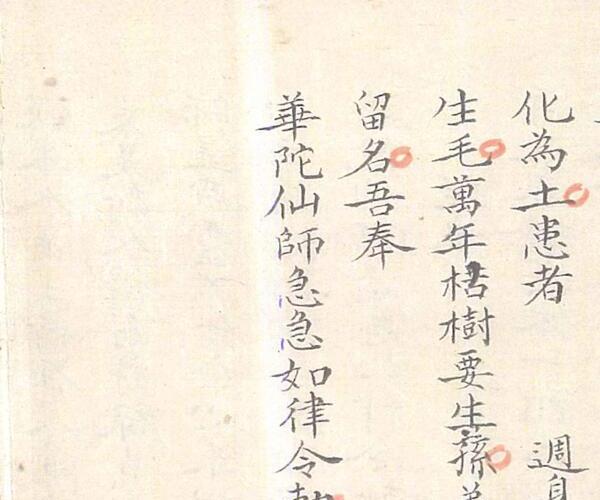 化為土患者 週身
生毛萬年枯樹要生蓀
留名吾奉
華陀仙師急急如律令敕